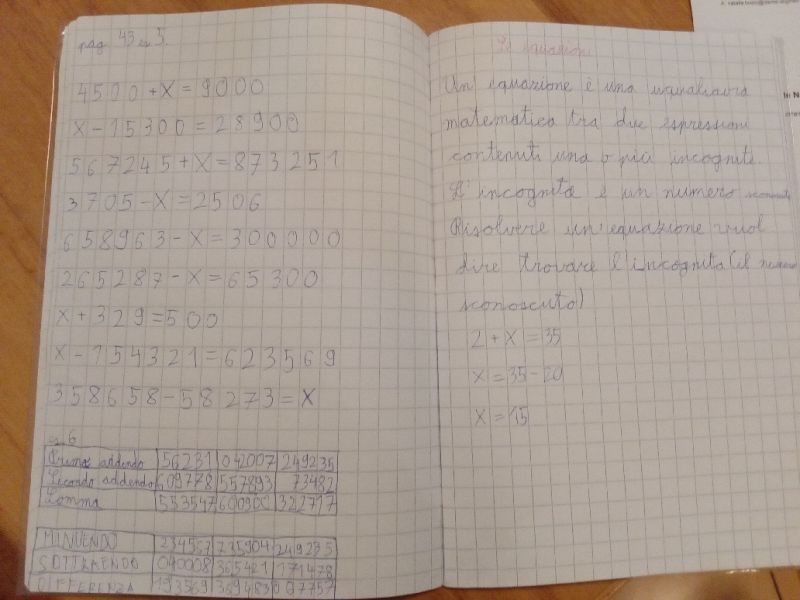 pag 43 es 5.
4500+X=9000
X-15300=28900
567245+X=873251
3705-X=2506
658963-X=300000
265287-X=65300
X+329=500
X-154321=623569
358658-58273=X
es 6
Primo addendo 56231 042007 249235
Secondo addendo 609778 557893 73482
Somma 553547 600900 322717
MINUENDO 234557 735904 249235
SOTTRAENDO 040008 365421 171478
DIFFERENZA 193569 369483 007757
Le equazioni
Un' equazione è una uguaglianza
matematica tra due espressioni
contenuti una o più incognite.
L'incognita è un numero sconosciuto
Risolvere un'equazione vuol
dire trovare l'incognita (il numero
sconoscuto)
2+X=35
X=35-20
X=15